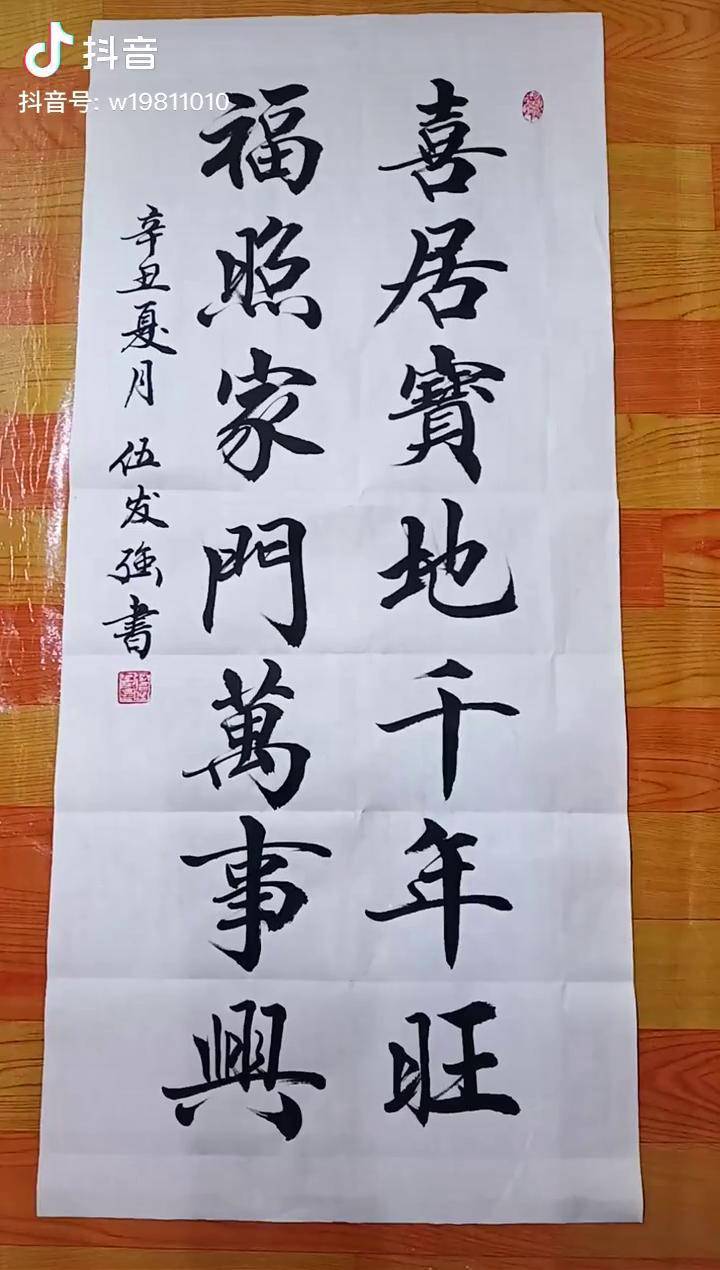 抖音
抖音号: w19811010
喜居寶地千年旺
福照家門萬事興
辛丑夏月 伍发強書